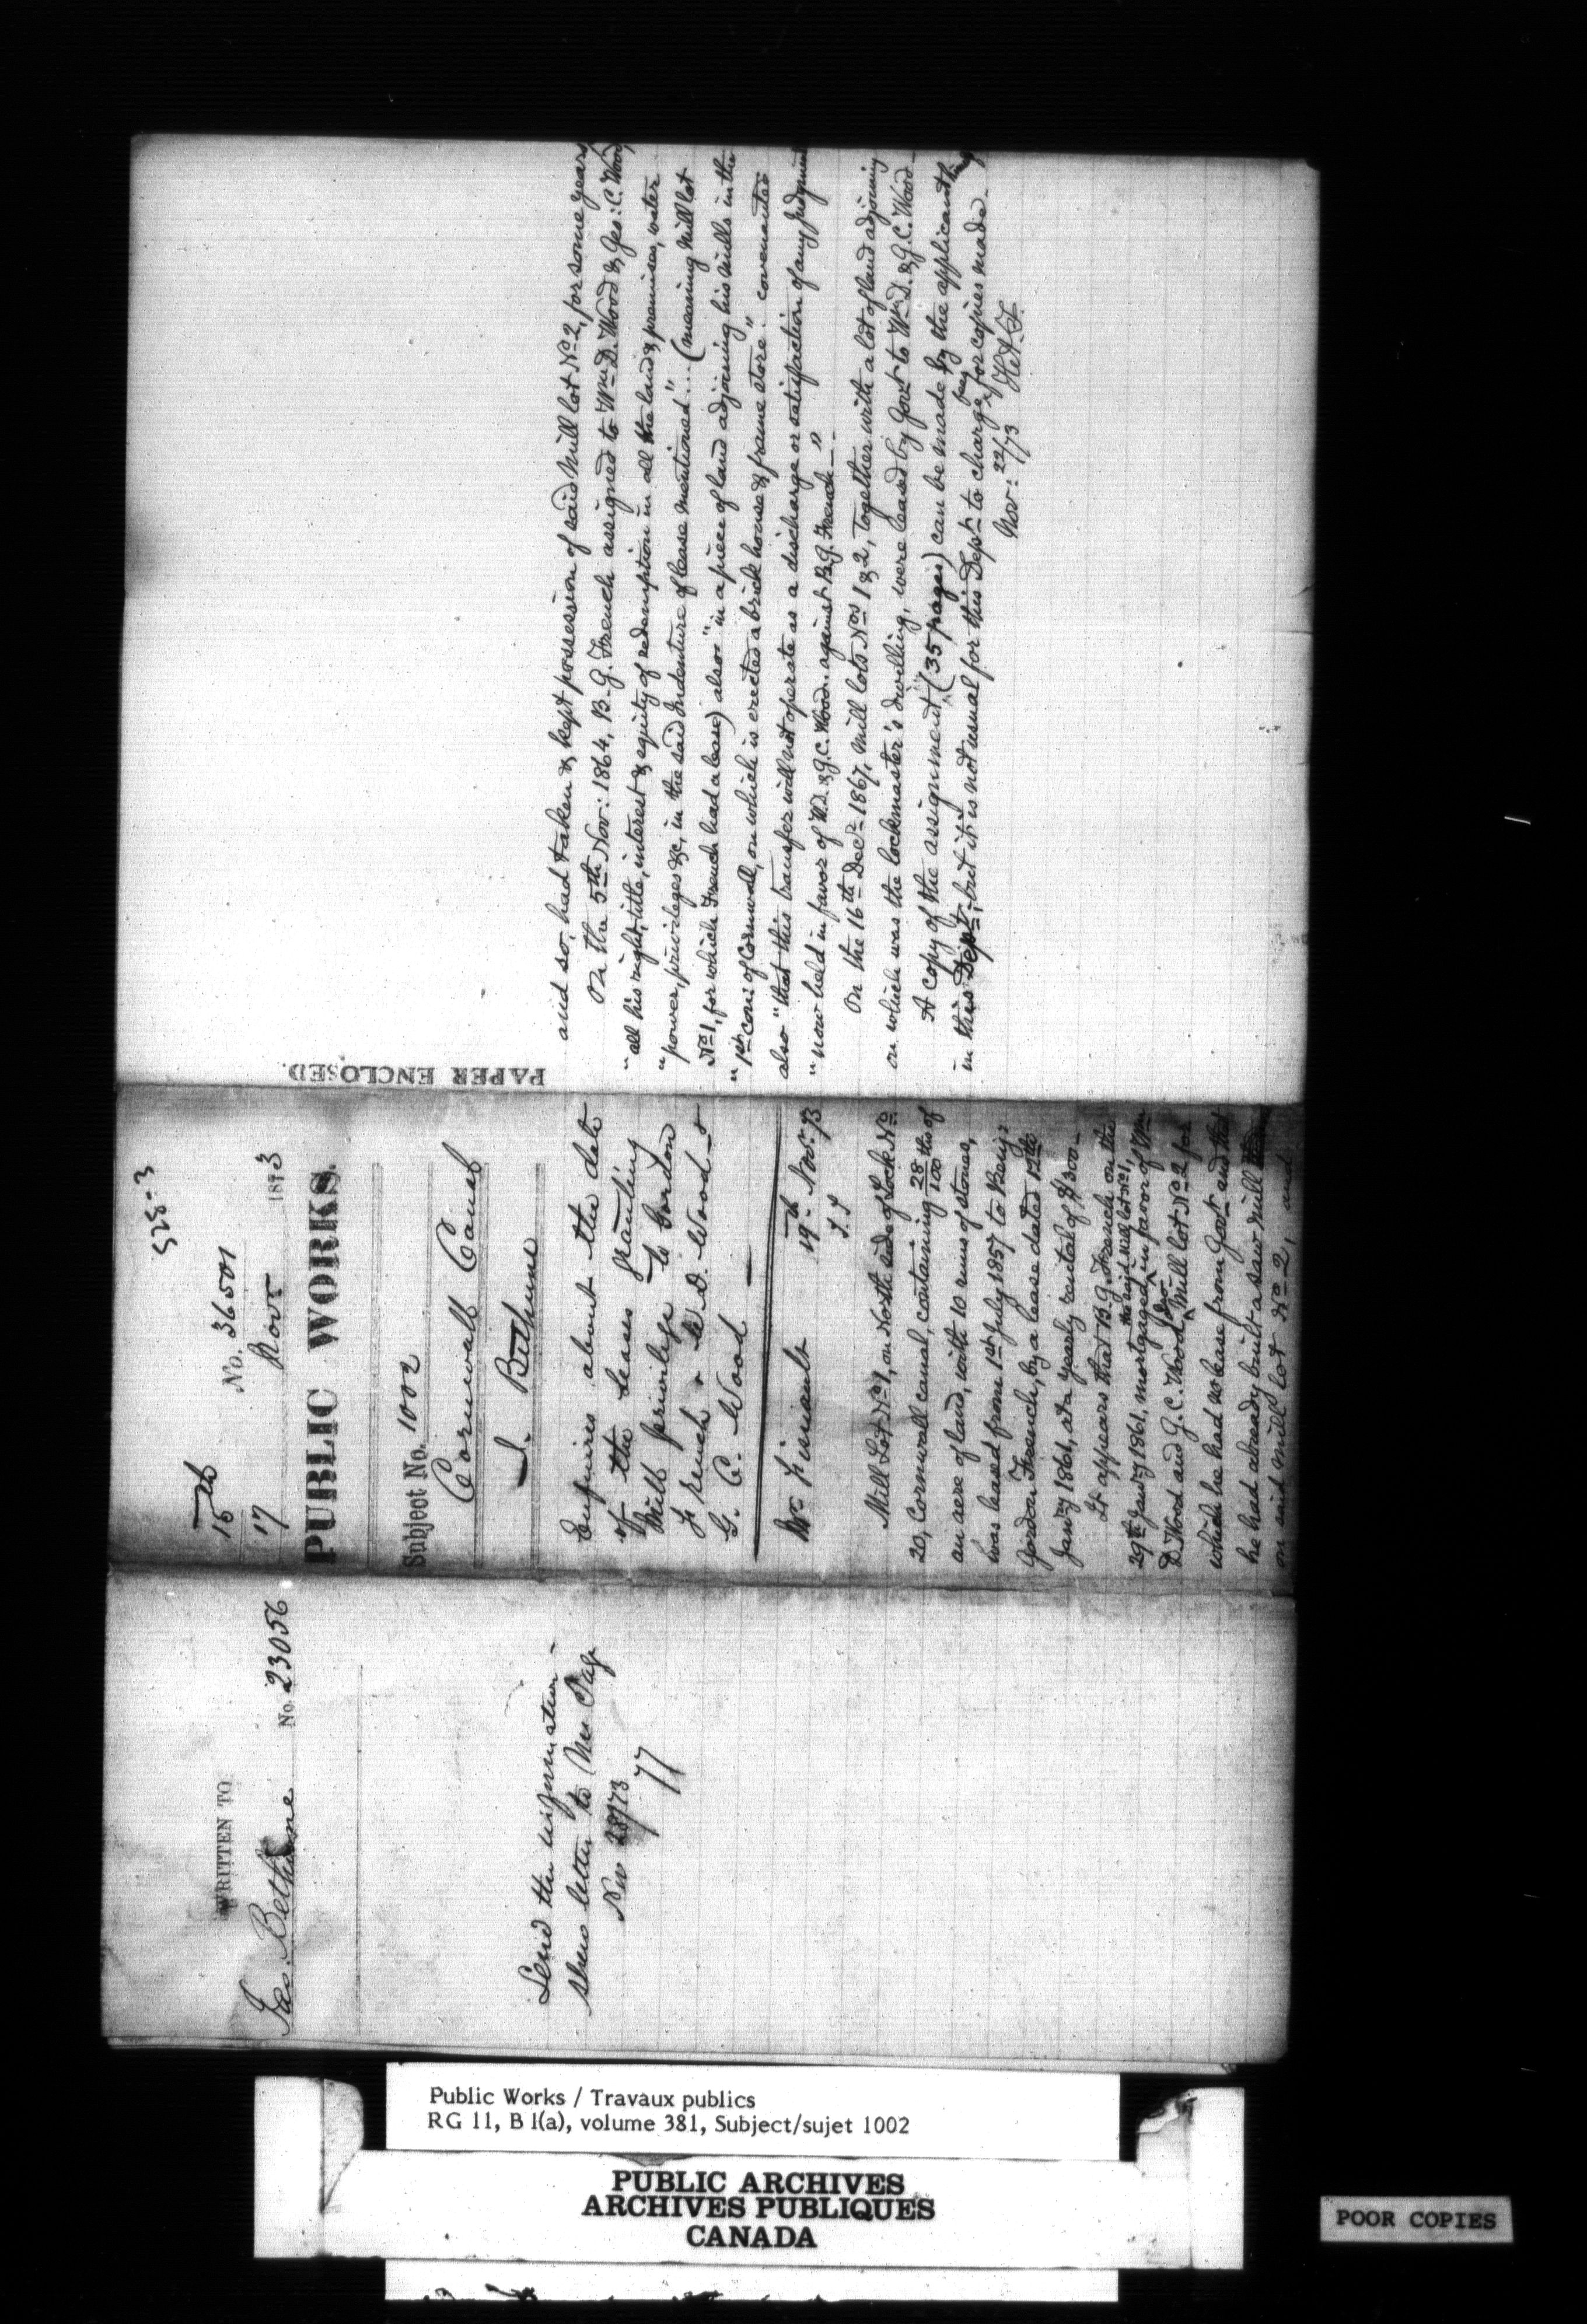 WRITTEN TO
Jas. Bethune
No. 23056
Send the information -
shew letter to Mr Page
Nov 28/73
528-3
15th No. 36501
17 Novr 1873
PUBLIC WORKS.
Subject No. 1002
Cornwall Canal
J. Bethune
Enquires about the date
of the leases granting
Mill privilege to Gordon
French & W. D. Wood &
G. C. Wood
Mr Finiault 19th Novr 73
Mill Lot No 1, on North side of Lock No
20, Cornwall canal, containing 28/100 ths of
an acre of land, with 10 runs of stones,
was leased from 1st July 1857 to Benj:
Gordon French, by a lease dated 12th
Jany 1861, at a yearly rental of $300-
It appears that B. G. French on the
29th Jany 1861, mortgaged the said Mill lot No 1, in favor of Wm
D. Wood and G. C. Wood, also Mill lot No 2 for
which he had no lease from Govt and that
he had already built a saw mill
on said Mill lot No 2, and
PAPER ENCLOSED.
and so, had taken & kept possession of said Mill lot No 2, for some years
On the 5th Nov: 1864, B. G. French assigned to Wm D. Wood & Geo: C. Wood
"all his right, title, interest & equity of redemption in all the land & premises, water
"power, privileges &c, in the said Indenture of lease mentioned"... (meaning Mill lot
No 1, for which French had a lease) also "in a piece of land adjoining his mills in the
"1st con: of Cornwall, on which is erected a brick house & frame store" covenanted
also "that this transfer will not operate as a discharge or satisfaction of any judgment
"now held in favor of W.D. & G.C. Wood against B.G. French - "
On the 16th Decr 1867, Mill lots Nos 1 & 2, together with a lot of land adjoining
on which was the lockmaster's dwelling, were leased by Govt to Wm D. & G. C. Wood -
A copy of the assignment (35 pages) can be made by the applicant
in this Dept, but it is not usual for this Dept to charge fees for copies made -
Nov: 22/73
Public Works / Travaux publics
RG 11, B 1(a), volume 381, Subject/sujet 1002
PUBLIC ARCHIVES
ARCHIVES PUBLIQUES
CANADA
POOR COPIES